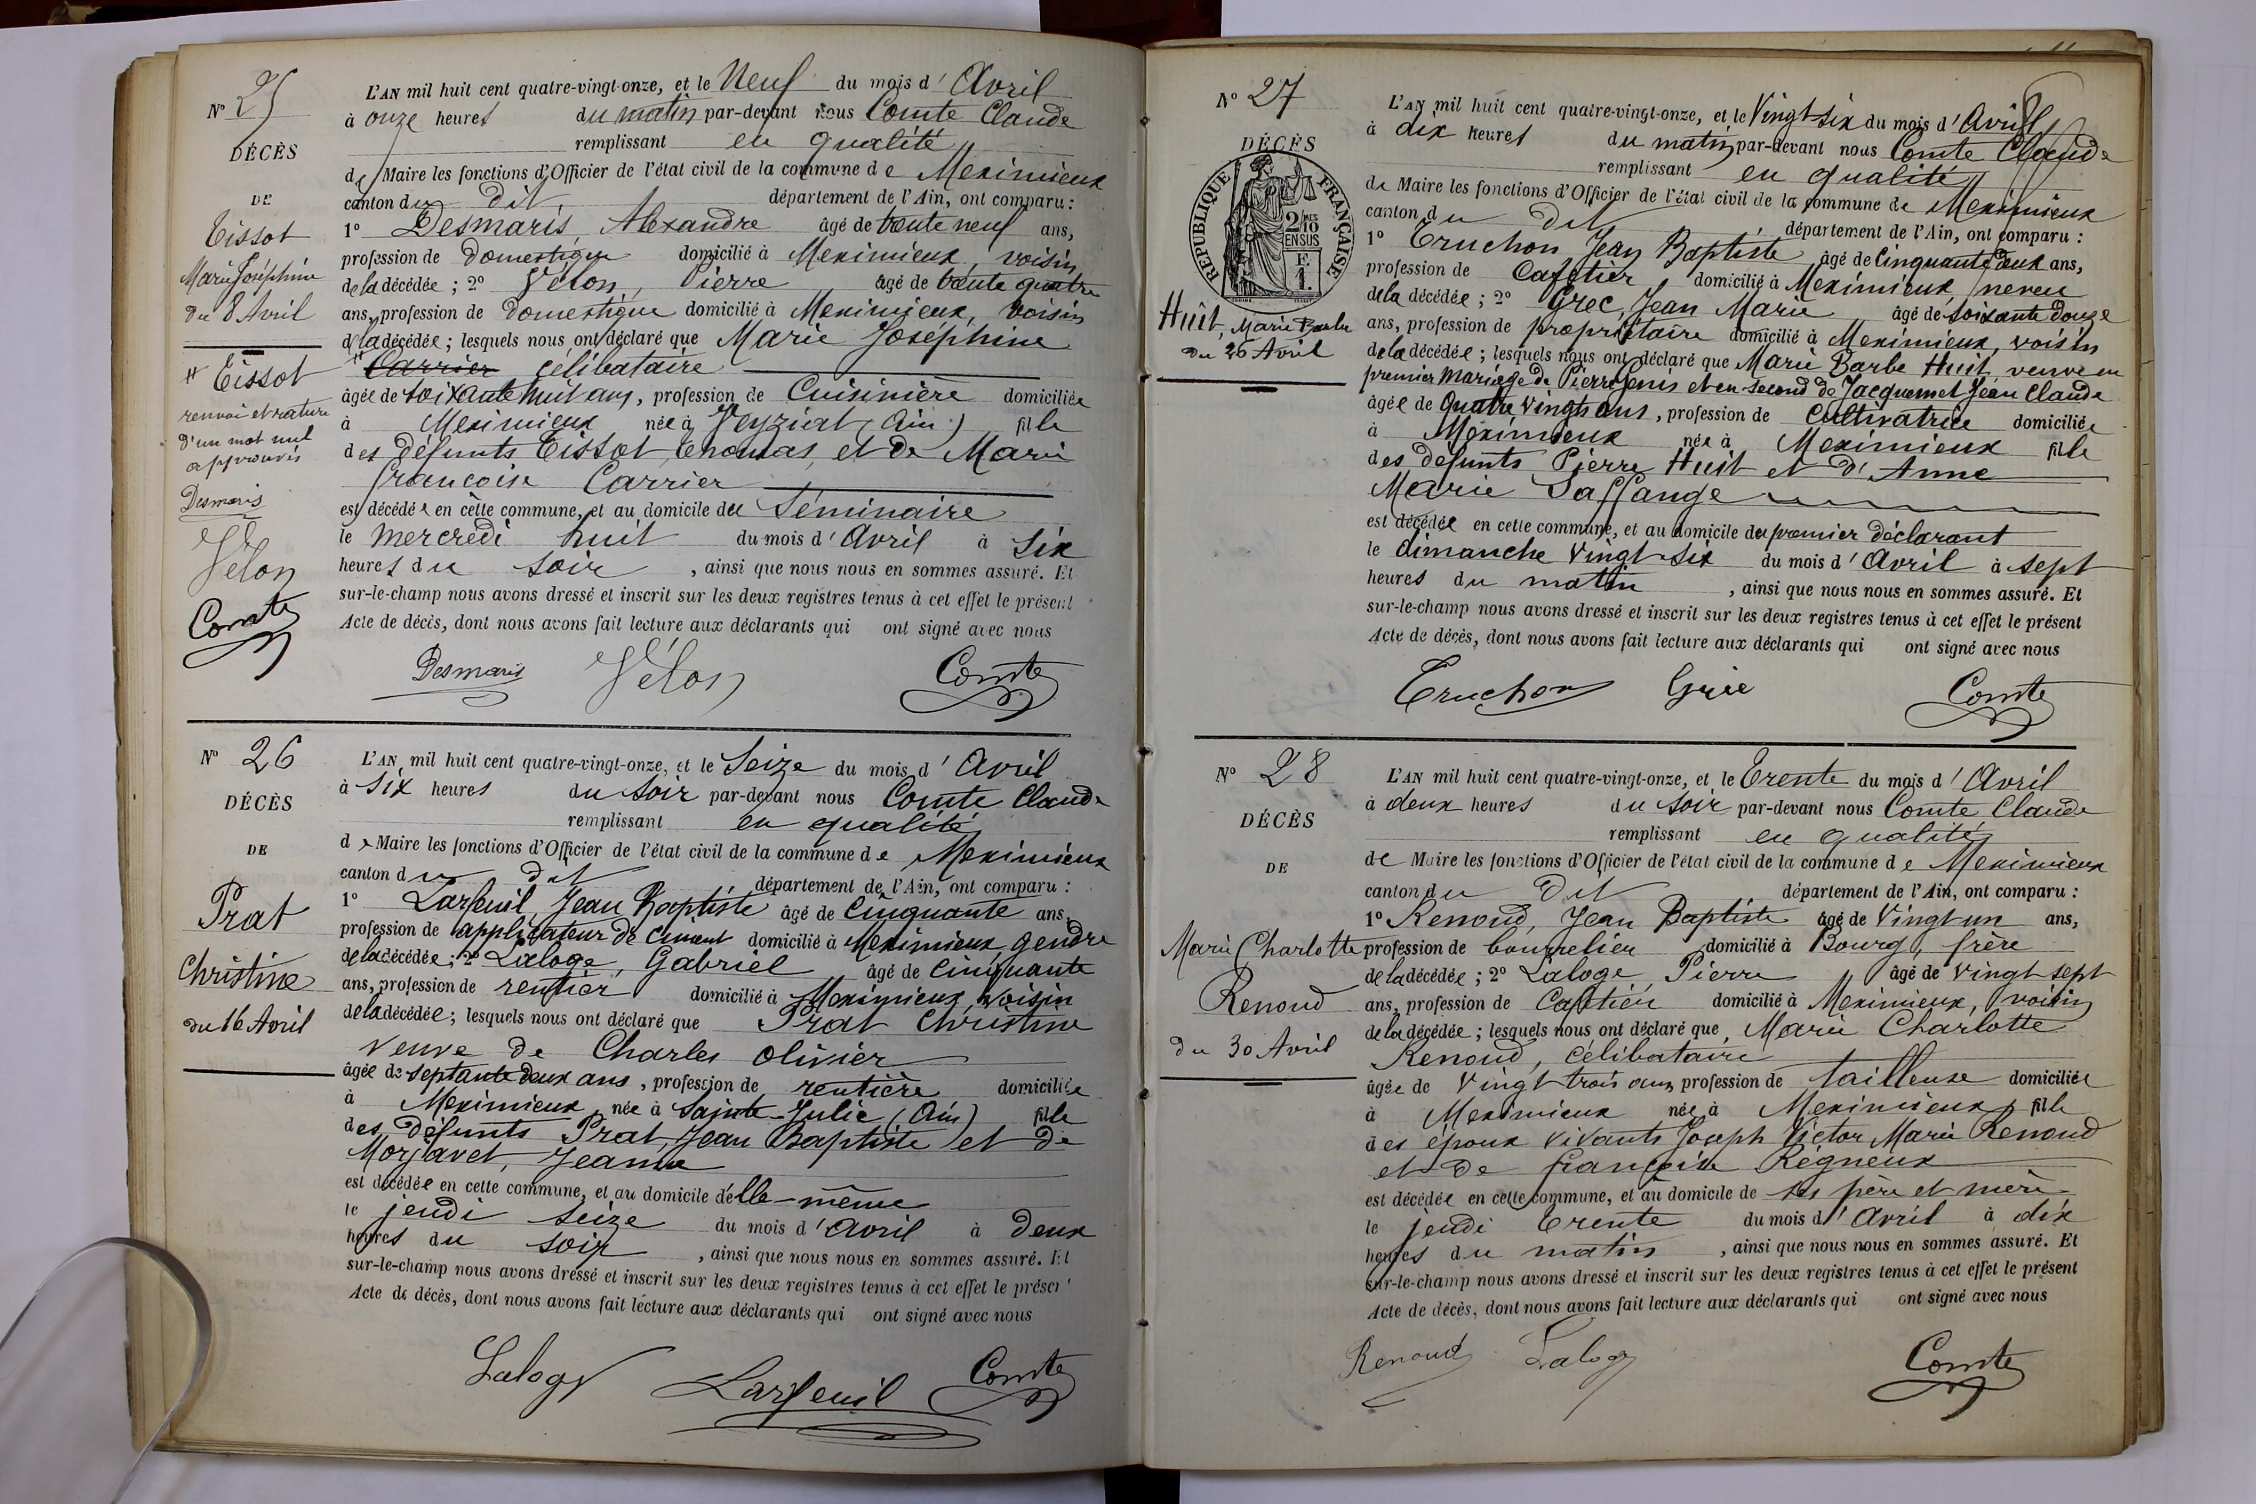 N° 25
DÉCÈS
DE
Tissot
Marie Joséphine
du 8 Avril
# Tissot
renvoi et rature
d'un mot nul
approuvés
Desmaris
Vélon
Comte
L'AN mil huit cent quatre-vingt-onze, et le Neuf du mois d'Avril
à onze heures du matin par-devant nous Comte Claude
remplissant en qualité
de Maire les fonctions d'Officier de l'état civil de la commune de Meximieux
canton du dit département de l'Ain, ont comparu :
1° Desmaris, Alexandre âgé de trente neuf ans,
profession de Domestique domicilié à Meximieux, voisin
de la décédée ; 2° Vélon, Pierre âgé de trente quatre
ans, profession de domestique domicilié à Meximieux, voisin
de la décédée ; lesquels nous ont déclaré que Marie Joséphine
# Carrier célibataire
âgée de soixante huit ans, profession de Cuisinière domiciliée
à Meximieux née à Veyziat (Ain) fille
des défunts Tissot, Thomas, et de Marie
Francoise Carrier
est décédée en cette commune, et au domicile du Séminaire
le mercredi huit du mois d'Avril à six
heures du soir, ainsi que nous nous en sommes assuré. Et
sur-le-champ nous avons dressé et inscrit sur les deux registres tenus à cet effet le présent
Acte de décès, dont nous avons fait lecture aux déclarants qui ont signé avec nous
Desmaris Vélon Comte
N° 26
DÉCÈS
DE
Prat
Christine
du 16 Avril
L'AN mil huit cent quatre-vingt-onze, et le Seize du mois d'Avril
à six heures du soir par-devant nous Comte Claude
remplissant en qualité
de Maire les fonctions d'Officier de l'état civil de la commune de Meximieux
canton du dit département de l'Ain, ont comparu :
1° Larfeuil, Jean Baptiste âgé de Cinquante ans,
profession de applicateur de ciment domicilié à Meximieux, gendre
de la décédée ; 2° Laloge, Gabriel âgé de cinquante
ans, profession de rentier domicilié à Meximieux, voisin
de la décédée ; lesquels nous ont déclaré que Prat Christine
veuve de Charles Olivier
âgée de septante deux ans, profession de rentière domiciliée
à Meximieux, née à Sainte-Julie (Ain) fille
des défunts Prat, Jean Baptiste et de
Morjavet, Jeanne
est décédée en cette commune, et au domicile d'elle-même
le jeudi seize du mois d'Avril à deux
heures du soir, ainsi que nous nous en sommes assuré. Et
sur-le-champ nous avons dressé et inscrit sur les deux registres tenus à cet effet le présent
Acte de décès, dont nous avons fait lecture aux déclarants qui ont signé avec nous
Laloge Larfeuil Comte
N° 27
DÉCÈS
RÉPUBLIQUE FRANÇAISE
2/10MES
EN SUS
F.
1.
Huit, Marie Barbe
du 26 Avril
L'AN mil huit cent quatre-vingt-onze, et le Vingt-six du mois d'Avril
à dix heures du matin par-devant nous Comte Claude
remplissant en qualité
de Maire les fonctions d'Officier de l'état civil de la commune de Meximieux
canton du dit département de l'Ain, ont comparu :
1° Truchon, Jean Baptiste âgé de cinquante deux ans,
profession de Cafetier domicilié à Meximieux, neveu
de la décédée ; 2° Grec, Jean Marie âgé de soixante douze
ans, profession de propriétaire domicilié à Meximieux, voisin
de la décédée ; lesquels nous ont déclaré que Marie Barbe Huit, veuve en
premier mariage de Pierre Jenis et en second de Jacquemet Jean Claude
âgée de Quatre Vingts ans, profession de cultivatrice domiciliée
à Meximieux née à Meximieux fille
des défunts Pierre Huit et d'Anne
Marie Saffange
est décédée en cette commune, et au domicile du premier déclarant
le dimanche Vingt-six du mois d'Avril à sept
heures du matin, ainsi que nous nous en sommes assuré. Et
sur-le-champ nous avons dressé et inscrit sur les deux registres tenus à cet effet le présent
Acte de décès, dont nous avons fait lecture aux déclarants qui ont signé avec nous
Truchon Comte
N° 28
DÉCÈS
DE
Marie Charlotte
Renoud
du 30 Avril
L'AN mil huit cent quatre-vingt-onze, et le Trente du mois d'Avril
à deux heures du soir par-devant nous Comte Claude
remplissant en qualité
de Maire les fonctions d'Officier de l'état civil de la commune de Meximieux
canton du dit département de l'Ain, ont comparu :
1° Renoud, Jean Baptiste âgé de Vingt un ans,
profession de bourrelier domicilié à Bourg, frère
de la décédée ; 2° Laloge, Pierre âgé de vingt sept
ans, profession de Cafetier domicilié à Meximieux, voisin
de la décédée ; lesquels nous ont déclaré que Marie Charlotte
Renoud, célibataire
âgée de Vingt trois ans profession de tailleuse domiciliée
à Meximieux née à Meximieux fille
des époux vivants Joseph Victor Marie Renoud
et de françoise Régneux
est décédée en cette commune, et au domicile de ses père et mère
le jeudi trente du mois d'Avril à dix
heures du matin, ainsi que nous nous en sommes assuré. Et
sur-le-champ nous avons dressé et inscrit sur les deux registres tenus à cet effet le présent
Acte de décès, dont nous avons fait lecture aux déclarants qui ont signé avec nous
Renoud Laloge Comte